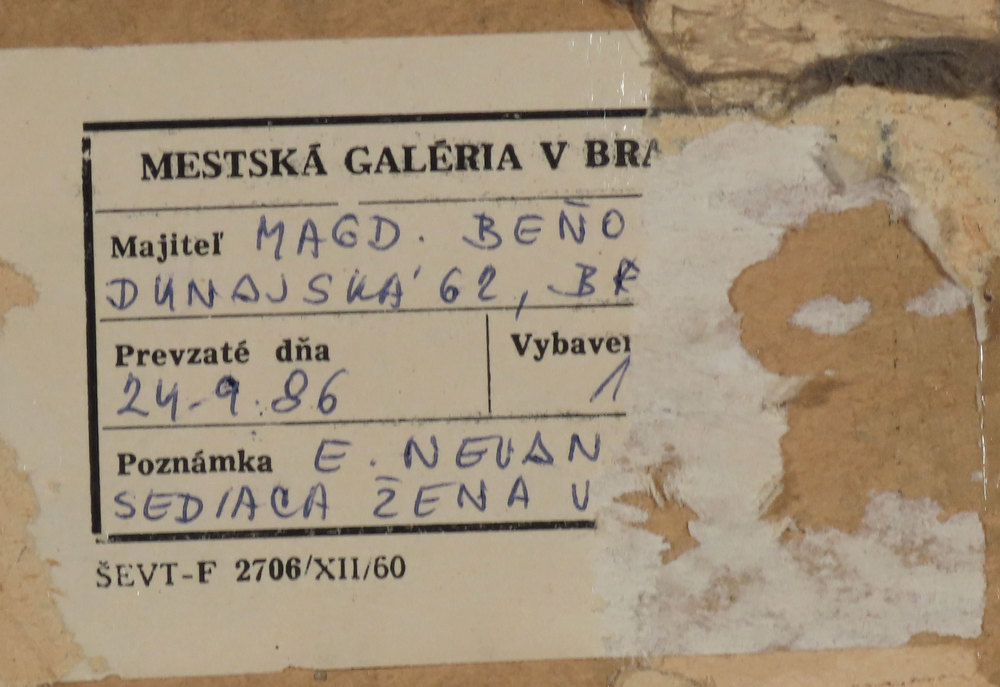 MESTSKÁ GALÉRIA V BRA
Majiteľ MAGD. BEŇO
DUNAJSKÁ 62, BR
Prevzaté dňa
Vybaven
24.9.86
1
Poznámka E. NEVAN
SEDIACA ŽENA V
ŠEVT-F 2706/XII/60